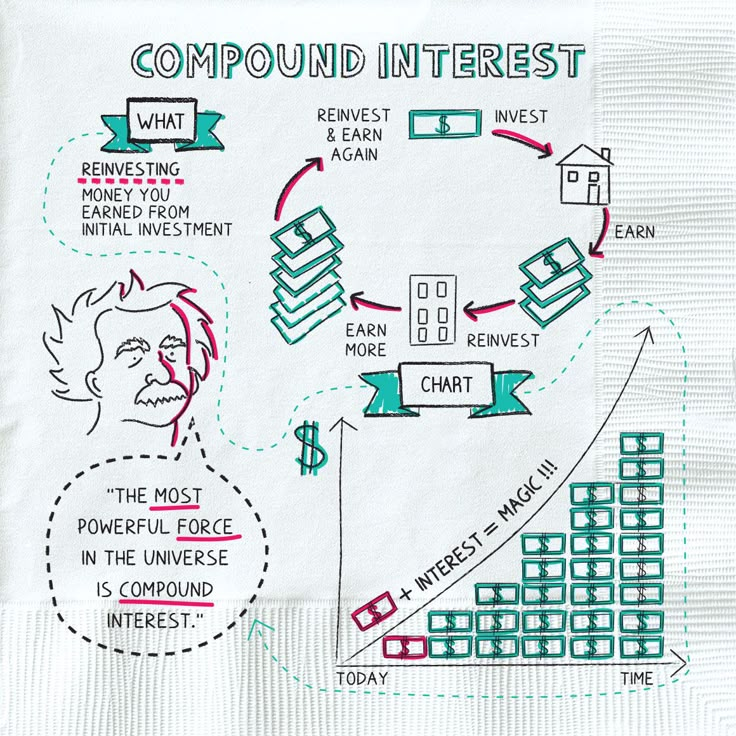 COMPOUND INTEREST
WHAT
REINVESTING
MONEY YOU
EARNED FROM
INITIAL INVESTMENT
REINVEST
& EARN
AGAIN
$
INVEST
EARN
$
REINVEST
EARN
MORE
$
CHART
"THE MOST
POWERFUL FORCE
IN THE UNIVERSE
IS COMPOUND
INTEREST."
$
$ + INTEREST = MAGIC !!!
$
$ $
$ $
$ $ $
$ $ $
$ $ $ $
$ $ $ $ $
$ $ $ $ $ $
TODAY
TIME